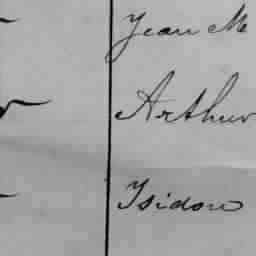 Jean M
Arthur
Isidore